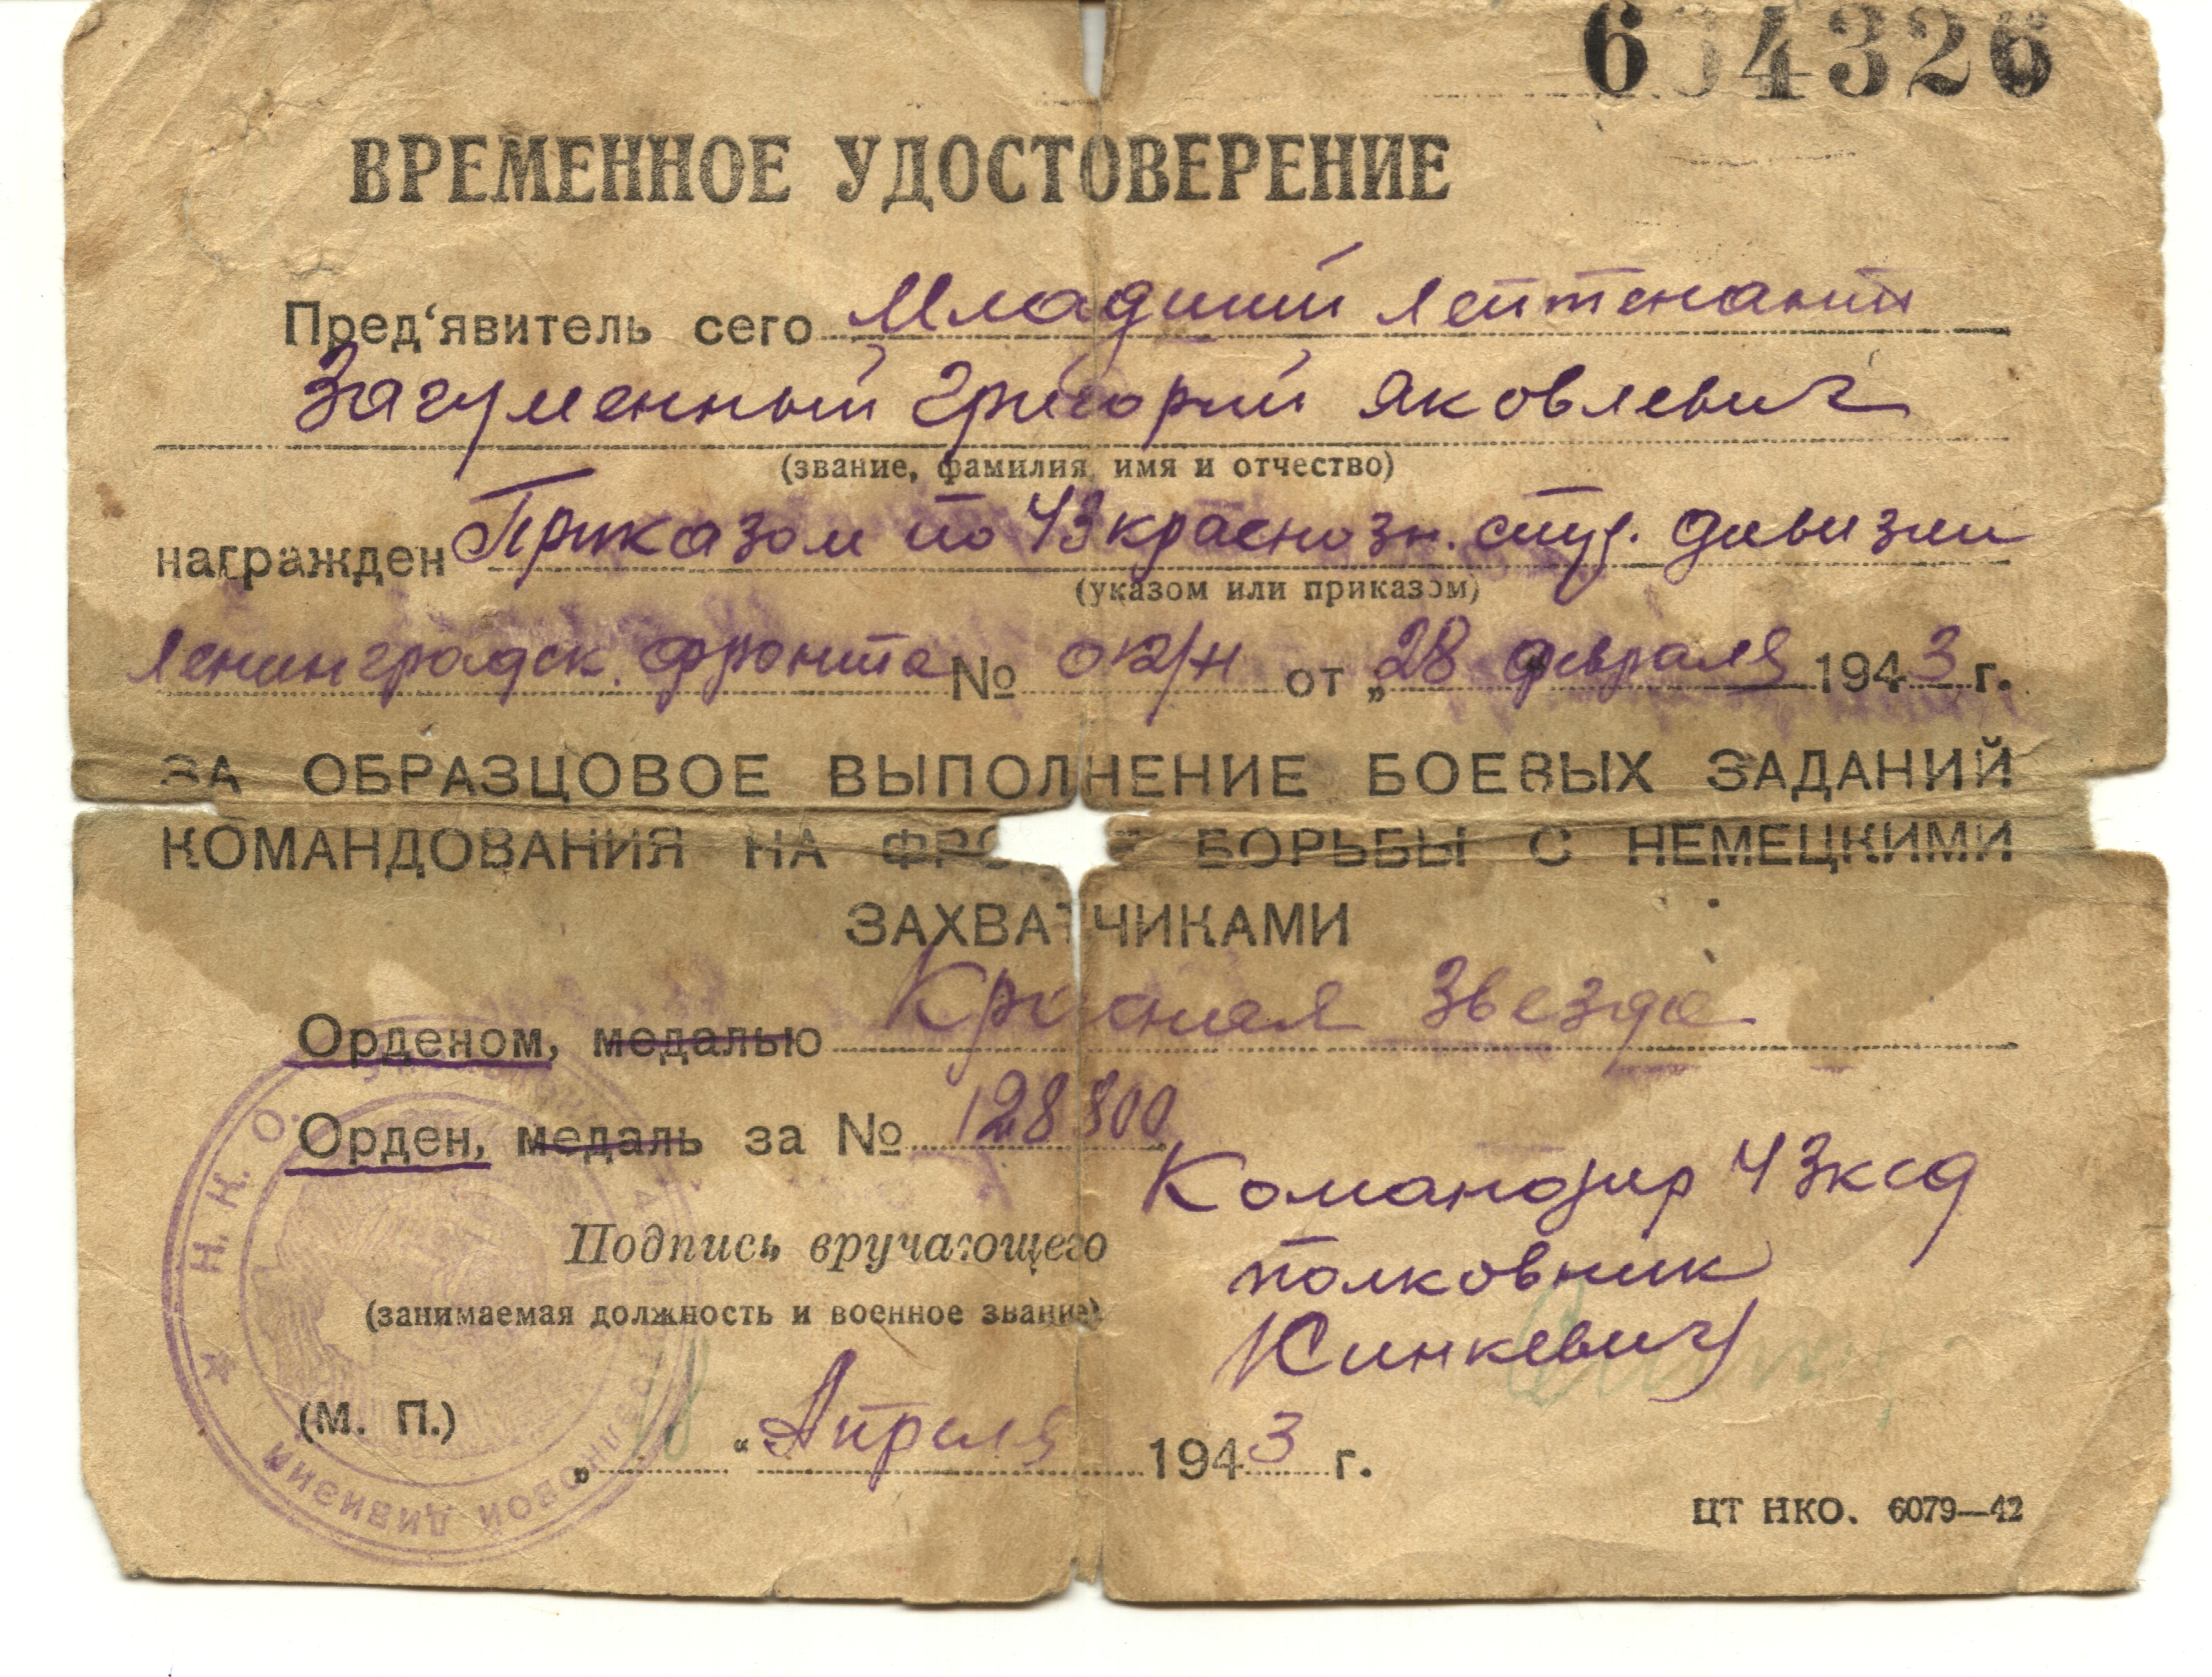 604326
ВРЕМЕННОЕ УДОСТОВЕРЕНИЕ
Пред'явитель сего Младший лейтенант
Загуменный Григорий Яковлевич
(звание, фамилия, имя и отчество)
награжден Приказом по 43 краснозн. стр. дивизии
(указом или приказом)
Ленинградск. фронта № 02/н от „28 февраля 1943 г.
ЗА ОБРАЗЦОВОЕ ВЫПОЛНЕНИЕ БОЕВЫХ ЗАДАНИЙ
КОМАНДОВАНИЯ НА ФРОНТЕ БОРЬБЫ С НЕМЕЦКИМИ
ЗАХВАТЧИКАМИ
Орденом, медалью Красная Звезда
Орден, медаль за № 128800
Командир 43 ксд
Подпись вручающего
полковник
(занимаемая должность и военное звание)
Синкевич
(М. П.)
„18 “ Апреля 1943 г.
ЦТ НКО. 6079—42
Н. К. О.
СТРЕЛКОВОЙ ДИВИЗИИ